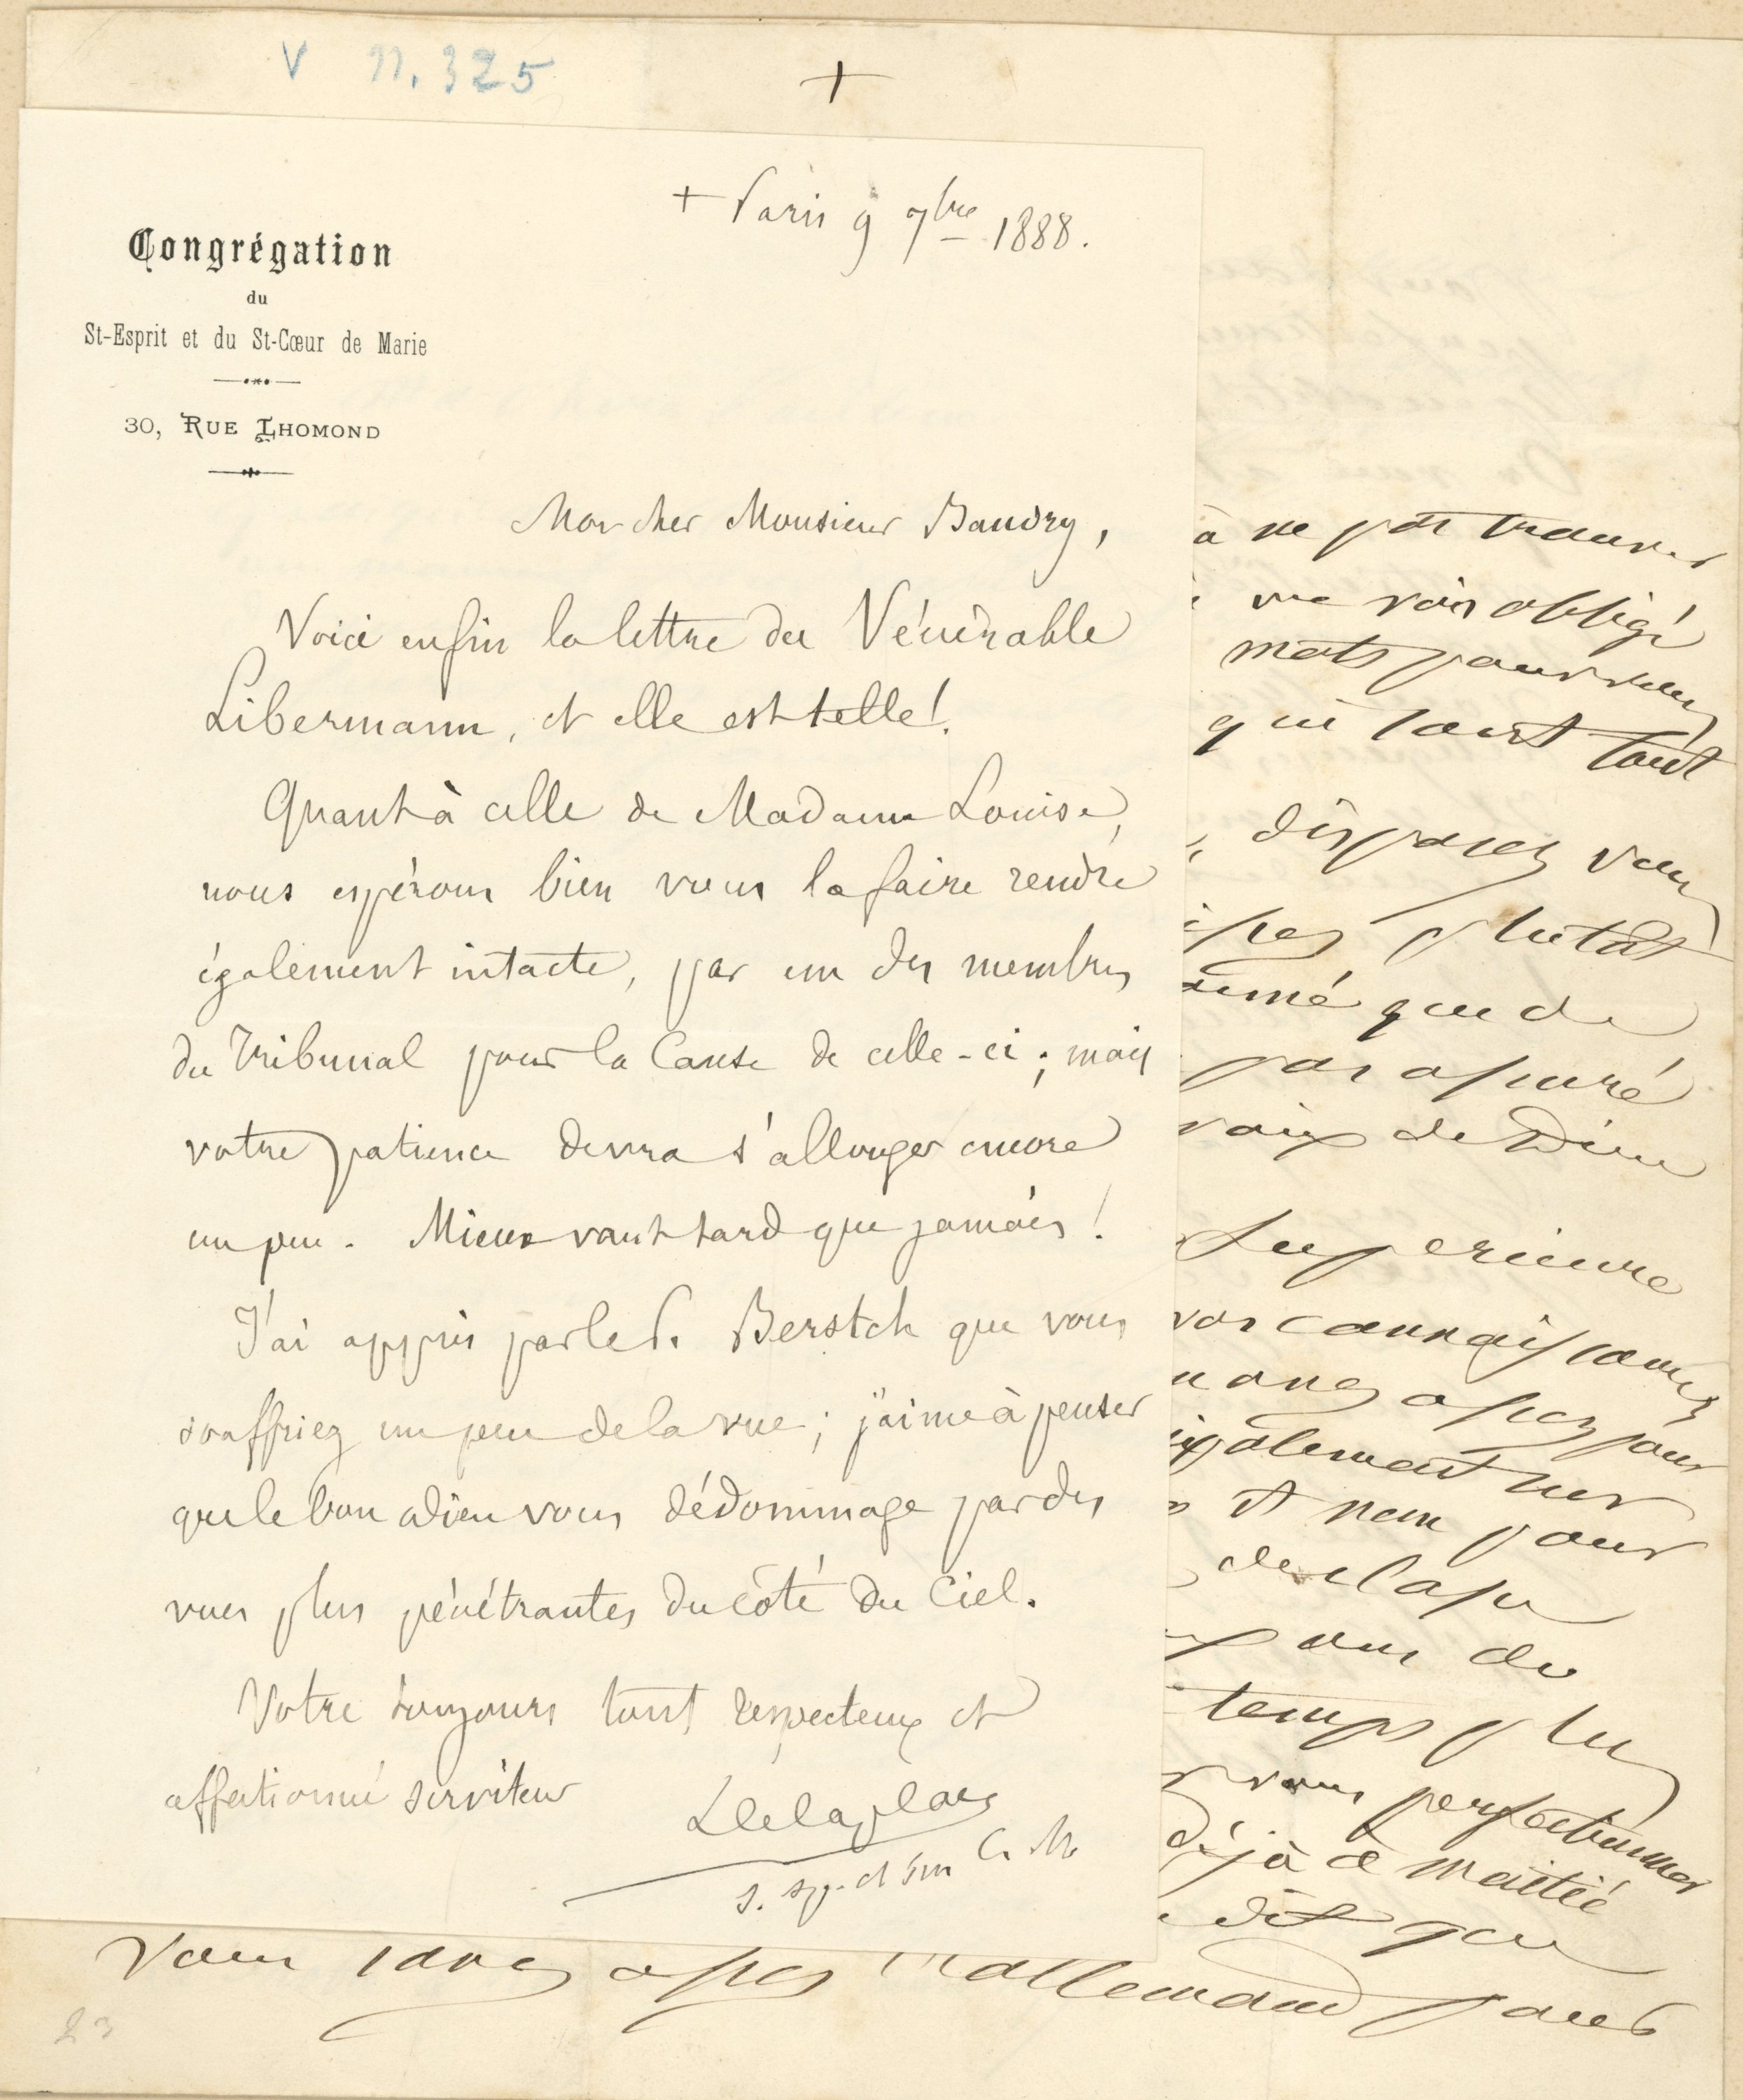 V n. 325
+
+ Paris 9 7bre 1888.
Congrégation
du
St-Esprit et du St-Cœur de Marie
30, RUE LHOMOND
Mon cher Monsieur Baudry,
Voici enfin la lettre du Vénérable
Libermann, et elle est telle !
Quant à celle de Madame Louise,
nous espérons bien vous la faire rendre
également intacte, par un des membres
du Tribunal pour la Cause de celle-ci ; mais
votre patience devra s'allonger encore
un peu. Mieux vaut tard que jamais !
J'ai appris par le P. Berstch que vous
souffriez un peu de la vue ; j'aime à penser
que le bon Dieu vous dédommage par des
vues plus pénétrantes du côté du Ciel.
Votre toujours tout respectueux et
affectionné serviteur
LDelaplace
s. sp. et im C. M.
à ne pas trouver
me vois obligé
mots pour vous
qui sont tout
disposez vous
plutôt
que de
pas assuré
voix de Dieu
Superieure
vos connaissances
assez pour
également
et non pour
de
temps plus
vous perfectionner
déjà à moitié
dit que
vous savez assez l'allemand pour
23